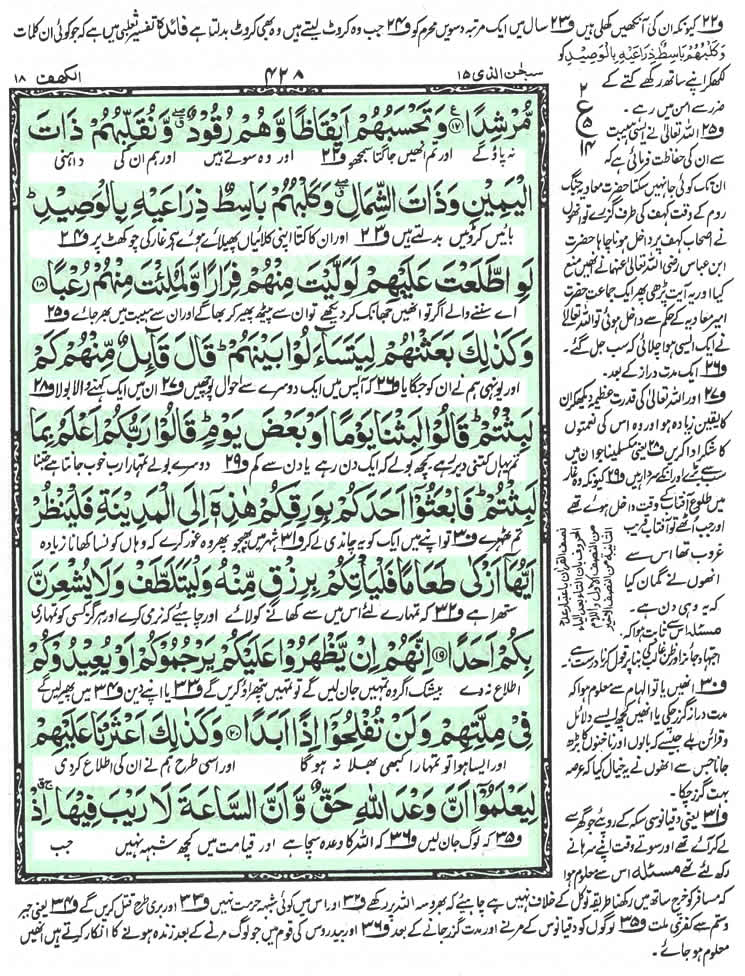 و۲۲ کیونکہ ان کی آنکھیں کھلی ہیں و۲۳ سال میں ایک مرتبہ دسویں محرم کو و۲۴ جب وہ کروٹ لیتے ہیں وہ بھی کروٹ بدلتا ہے فائدہ تفسیر ثعلبی میں ہے کہ جو کوئی ان کلمات
وَكَلْبُهُمْ بَاسِطٌ ذِرَاعَيْهِ بِالْوَصِيْدِ کو
لکھ کر اپنے ساتھ رکھے کتے کے
ضرر سے امن میں رہے۔
سبحٰن الذی ۱۵
۴۲۸
الکھف ۱۸
مُّرْشِدًا ۱۷ وَتَحْسَبُهُمْ اَيْقَاظًا وَّهُمْ رُقُوْدٌ ۖ وَّنُقَلِّبُهُمْ ذَاتَ
نہ پاؤ گے اور تم انھیں جاگتا سمجھو و۲۲ اور وہ سوتے ہیں اور ہم ان کی داہنی
الْيَمِيْنِ وَذَاتَ الشِّمَالِ ۖ وَكَلْبُهُمْ بَاسِطٌ ذِرَاعَيْهِ بِالْوَصِيْدِ ؕ
بائیں کروٹیں بدلتے ہیں و۲۳ اور ان کا کتا اپنی کلائیاں پھیلائے ہوئے ہے غار کی چوکھٹ پر و۲۴
لَوِ اطَّلَعْتَ عَلَيْهِمْ لَوَلَّيْتَ مِنْهُمْ فِرَارًا وَّلَمُلِئْتَ مِنْهُمْ رُعْبًا ۱۸
اے سننے والے اگر تو انھیں جھانک کر دیکھے تو ان سے پیٹھ پھیر کر بھاگے اور ان سے ہیبت میں بھر جائے و۲۵
وَكَذٰلِكَ بَعَثْنٰهُمْ لِيَتَسَآءَلُوْا بَيْنَهُمْ ؕ قَالَ قَآئِلٌ مِّنْهُمْ كَمْ
اور یونہی ہم نے ان کو جگایا و۲۶ کہ آپس میں ایک دوسرے سے احوال پوچھیں و۲۷ ان میں ایک کہنے والا بولا و۲۸
لَبِثْتُمْ ؕ قَالُوْا لَبِثْنَا يَوْمًا اَوْ بَعْضَ يَوْمٍ ؕ قَالُوْا رَبُّكُمْ اَعْلَمُ بِمَا
تم یہاں کتنی دیر رہے کچھ بولے کہ ایک دن رہے یا دن سے کم و۲۹ دوسرے بولے تمہارا رب خوب جانتا ہے جتنا
لَبِثْتُمْ ؕ فَابْعَثُوْٓا اَحَدَكُمْ بِوَرِقِكُمْ هٰذِهٖٓ اِلَى الْمَدِيْنَةِ فَلْيَنْظُرْ
تم ٹھہرے و۳۰ تو اپنے میں ایک کو یہ چاندی لے کر و۳۱ شہر میں بھیجو پھر وہ غور کرے کہ وہاں کونسا کھانا زیادہ
اَيُّهَآ اَزْكٰى طَعَامًا فَلْيَاْتِكُمْ بِرِزْقٍ مِّنْهُ وَلْيَتَلَطَّفْ وَلَا يُشْعِرَنَّ
ستھرا ہے و۳۲ کہ تمہارے لئے اس میں سے کھانے کو لائے اور چاہیے کہ نرمی کرے اور ہرگز کسی کو تمہاری
بِكُمْ اَحَدًا ۱۹ اِنَّهُمْ اِنْ يَّظْهَرُوْا عَلَيْكُمْ يَرْجُمُوْكُمْ اَوْ يُعِيْدُوْكُمْ
اطلاع نہ دے بیشک اگر وہ تمہیں جان لیں گے تو تمہیں پتھراؤ کریں گے و۳۳ یا اپنے دین و۳۴ میں پھیر لیں گے
فِيْ مِلَّتِهِمْ وَلَنْ تُفْلِحُوْٓا اِذًا اَبَدًا ۲۰ وَكَذٰلِكَ اَعْثَرْنَا عَلَيْهِمْ
اور ایسا ہوا تو تمہارا کبھی بھلا نہ ہوگا اور اسی طرح ہم نے ان کی اطلاع کردی
لِيَعْلَمُوْٓا اَنَّ وَعْدَ اللّٰهِ حَقٌّ وَّاَنَّ السَّاعَةَ لَا رَيْبَ فِيْهَا ۚ اِذْ
و۳۵ کہ لوگ جان لیں و۳۶ کہ اللہ کا وعدہ سچا ہے اور قیامت میں کچھ شبہہ نہیں جب
۲
ع
۵
۱۴
و۲۵ اللہ تعالیٰ نے ایسی ہیبت
سے ان کی حفاظت فرمائی ہے کہ
ان تک کوئی جا نہیں سکتا حضرت معاویہ جنگ
روم کے وقت کہف کی طرف گزرے تو انھوں
نے اصحاب کہف پر داخل ہونا چاہا حضرت
ابن عباس رضی اللہ تعالیٰ عنہما نے انھیں منع
کیا اور یہ آیت پڑھی پھر ایک جماعت حضرت
امیر معاویہ کے حکم سے داخل ہوئی تو اللہ تعالیٰ
نے ایک ایسی ہوا چلائی کہ سب جل گئے۔
و۲۶ ایک مدت دراز کے بعد۔
و۲۷ اور اللہ تعالیٰ کی قدرت عظیمہ دیکھ کر ان
کا یقین زیادہ ہو اور وہ اس کی نعمتوں
کا شکر ادا کریں و۲۸ یعنی مکسلمینا جو ان میں
سب سے بڑے اور انکے سردار ہیں و۲۹ کیونکہ وہ غار
میں طلوع آفتاب کے وقت داخل ہوئے تھے
اور جب اٹھے تو آفتاب قریب
غروب تھا اس سے
انھوں نے گمان کیا
کہ یہ وہی دن ہے۔
مسئلہ اس سے ثابت ہوا کہ
اجتہاد جائز اور ظن غالب کی بنا پر قول کرنا درست ہے۔
و۳۰ انھیں یا تو الہام سے معلوم ہوا کہ
مدت دراز گزر چکی یا انھیں کچھ ایسے دلائل
و قرائن ملے جیسے کہ بالوں اور ناخنوں کا بڑھ
جانا جس سے انھوں نے یہ خیال کیا کہ عرصہ
بہت گزر چکا۔
و۳۱ یعنی دقیانوسی سکہ کے روپے جو گھر سے
لے کر آئے تھے اور سوتے وقت اپنے سرہانے
رکھ لئے تھے مسئلہ اس سے معلوم ہوا
کہ مسافر کو خرچ ساتھ میں رکھنا طریقۂ توکل کے خلاف نہیں ہے چاہیے کہ بھروسہ اللہ پر رکھے و۳۲ اور اس میں کوئی شبہ حرمت نہیں و۳۳ اور بری طرح قتل کریں گے و۳۴ یعنی جبر
و ستم سے کفری ملت و۳۵ لوگوں کو دقیانوس کے مرنے اور مدت گزر جانے کے بعد و۳۶ اور بیدروس کی قوم میں جو لوگ مرنے کے بعد زندہ ہونے کا انکار کرتے ہیں انھیں
معلوم ہو جائے۔